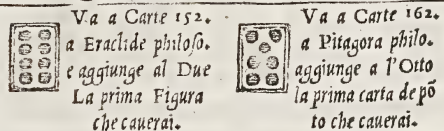 Va a Carte 152.
a Eraclide philoſo.
e aggiunge al Due
La prima Figura
che cauerai.
Va a Carte 162.
a Pitagora philo.
aggiunge a l'Otto
la prima carta de põ
to che cauerai.